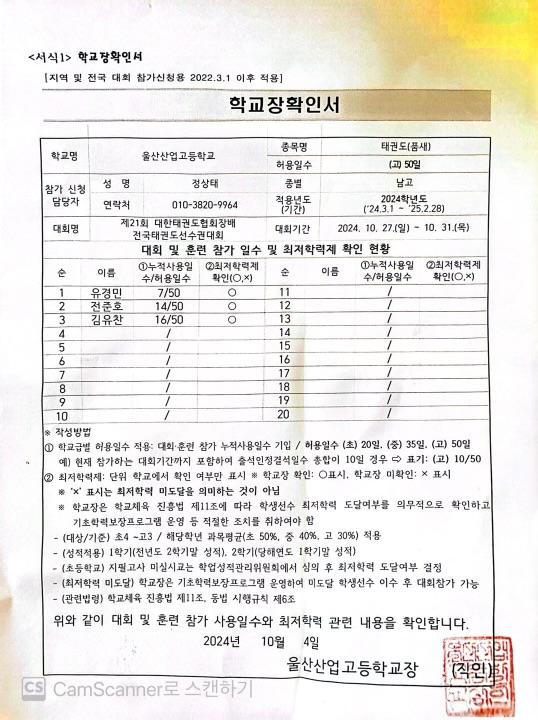 <서식1> 학교장확인서
[지역 및 전국 대회 참가신청용 2022.3.1 이후 적용]
학교장확인서
학교명 울산산업고등학교 종목명 태권도(품새)
허용일수 (고) 50일
참가 신청 담당자 성 명 정상태 종별 남고
연락처 010-3820-9964 적용년도 (기간) 2024학년도 ('24.3.1 ~ '25.2.28)
대회명 제21회 대한태권도협회장배 전국태권도선수권대회 대회기간 2024. 10. 27.(일) ~ 10. 31.(목)
대회 및 훈련 참가 일수 및 최저학력제 확인 현황
순 이름 ①누적사용일수/허용일수 ②최저학력제 확인(○,×) 순 이름 ①누적사용일수/허용일수 ②최저학력제 확인(○,×)
1 유경민 7/50 ○ 11 /
2 전준호 14/50 ○ 12 /
3 김유찬 16/50 ○ 13 /
4 / 14 /
5 / 15 /
6 / 16 /
7 / 17 /
8 / 18 /
9 / 19 /
10 / 20 /
※ 작성방법
① 학교급별 허용일수 적용: 대회·훈련 참가 누적사용일수 기입 / 허용일수 (초) 20일, (중) 35일, (고) 50일
예) 현재 참가하는 대회기간까지 포함하여 출석인정결석일수 총합이 10일 경우 ⇨ 표기: (고) 10/50
② 최저학력제: 단위 학교에서 확인 여부만 표시 ※ 학교장 확인: ○표시, 학교장 미확인: × 표시
※ '×' 표시는 최저학력 미도달을 의미하는 것이 아님
※ 학교장은 학교체육 진흥법 제11조에 따라 학생선수 최저학력 도달여부를 의무적으로 확인하고
기초학력보장프로그램 운영 등 적절한 조치를 취하여야 함
- (대상/기준) 초4 ~고3 / 해당학년 과목평균(초 50%, 중 40%, 고 30%) 적용
- (성적적용) 1학기(전년도 2학기말 성적), 2학기(당해연도 1학기말 성적)
- (초등학교) 지필고사 미실시교는 학업성적관리위원회에서 심의 후 최저학력 도달여부 결정
- (최저학력 미도달) 학교장은 기초학력보장프로그램 운영하여 미도달 학생선수 이수 후 대회참가 가능
- (관련법령) 학교체육 진흥법 제11조, 동법 시행규칙 제6조
위와 같이 대회 및 훈련 참가 사용일수와 최저학력 관련 내용을 확인합니다.
2024년 10월 4일
울산산업고등학교장 (직인)
CS CamScanner로 스캔하기